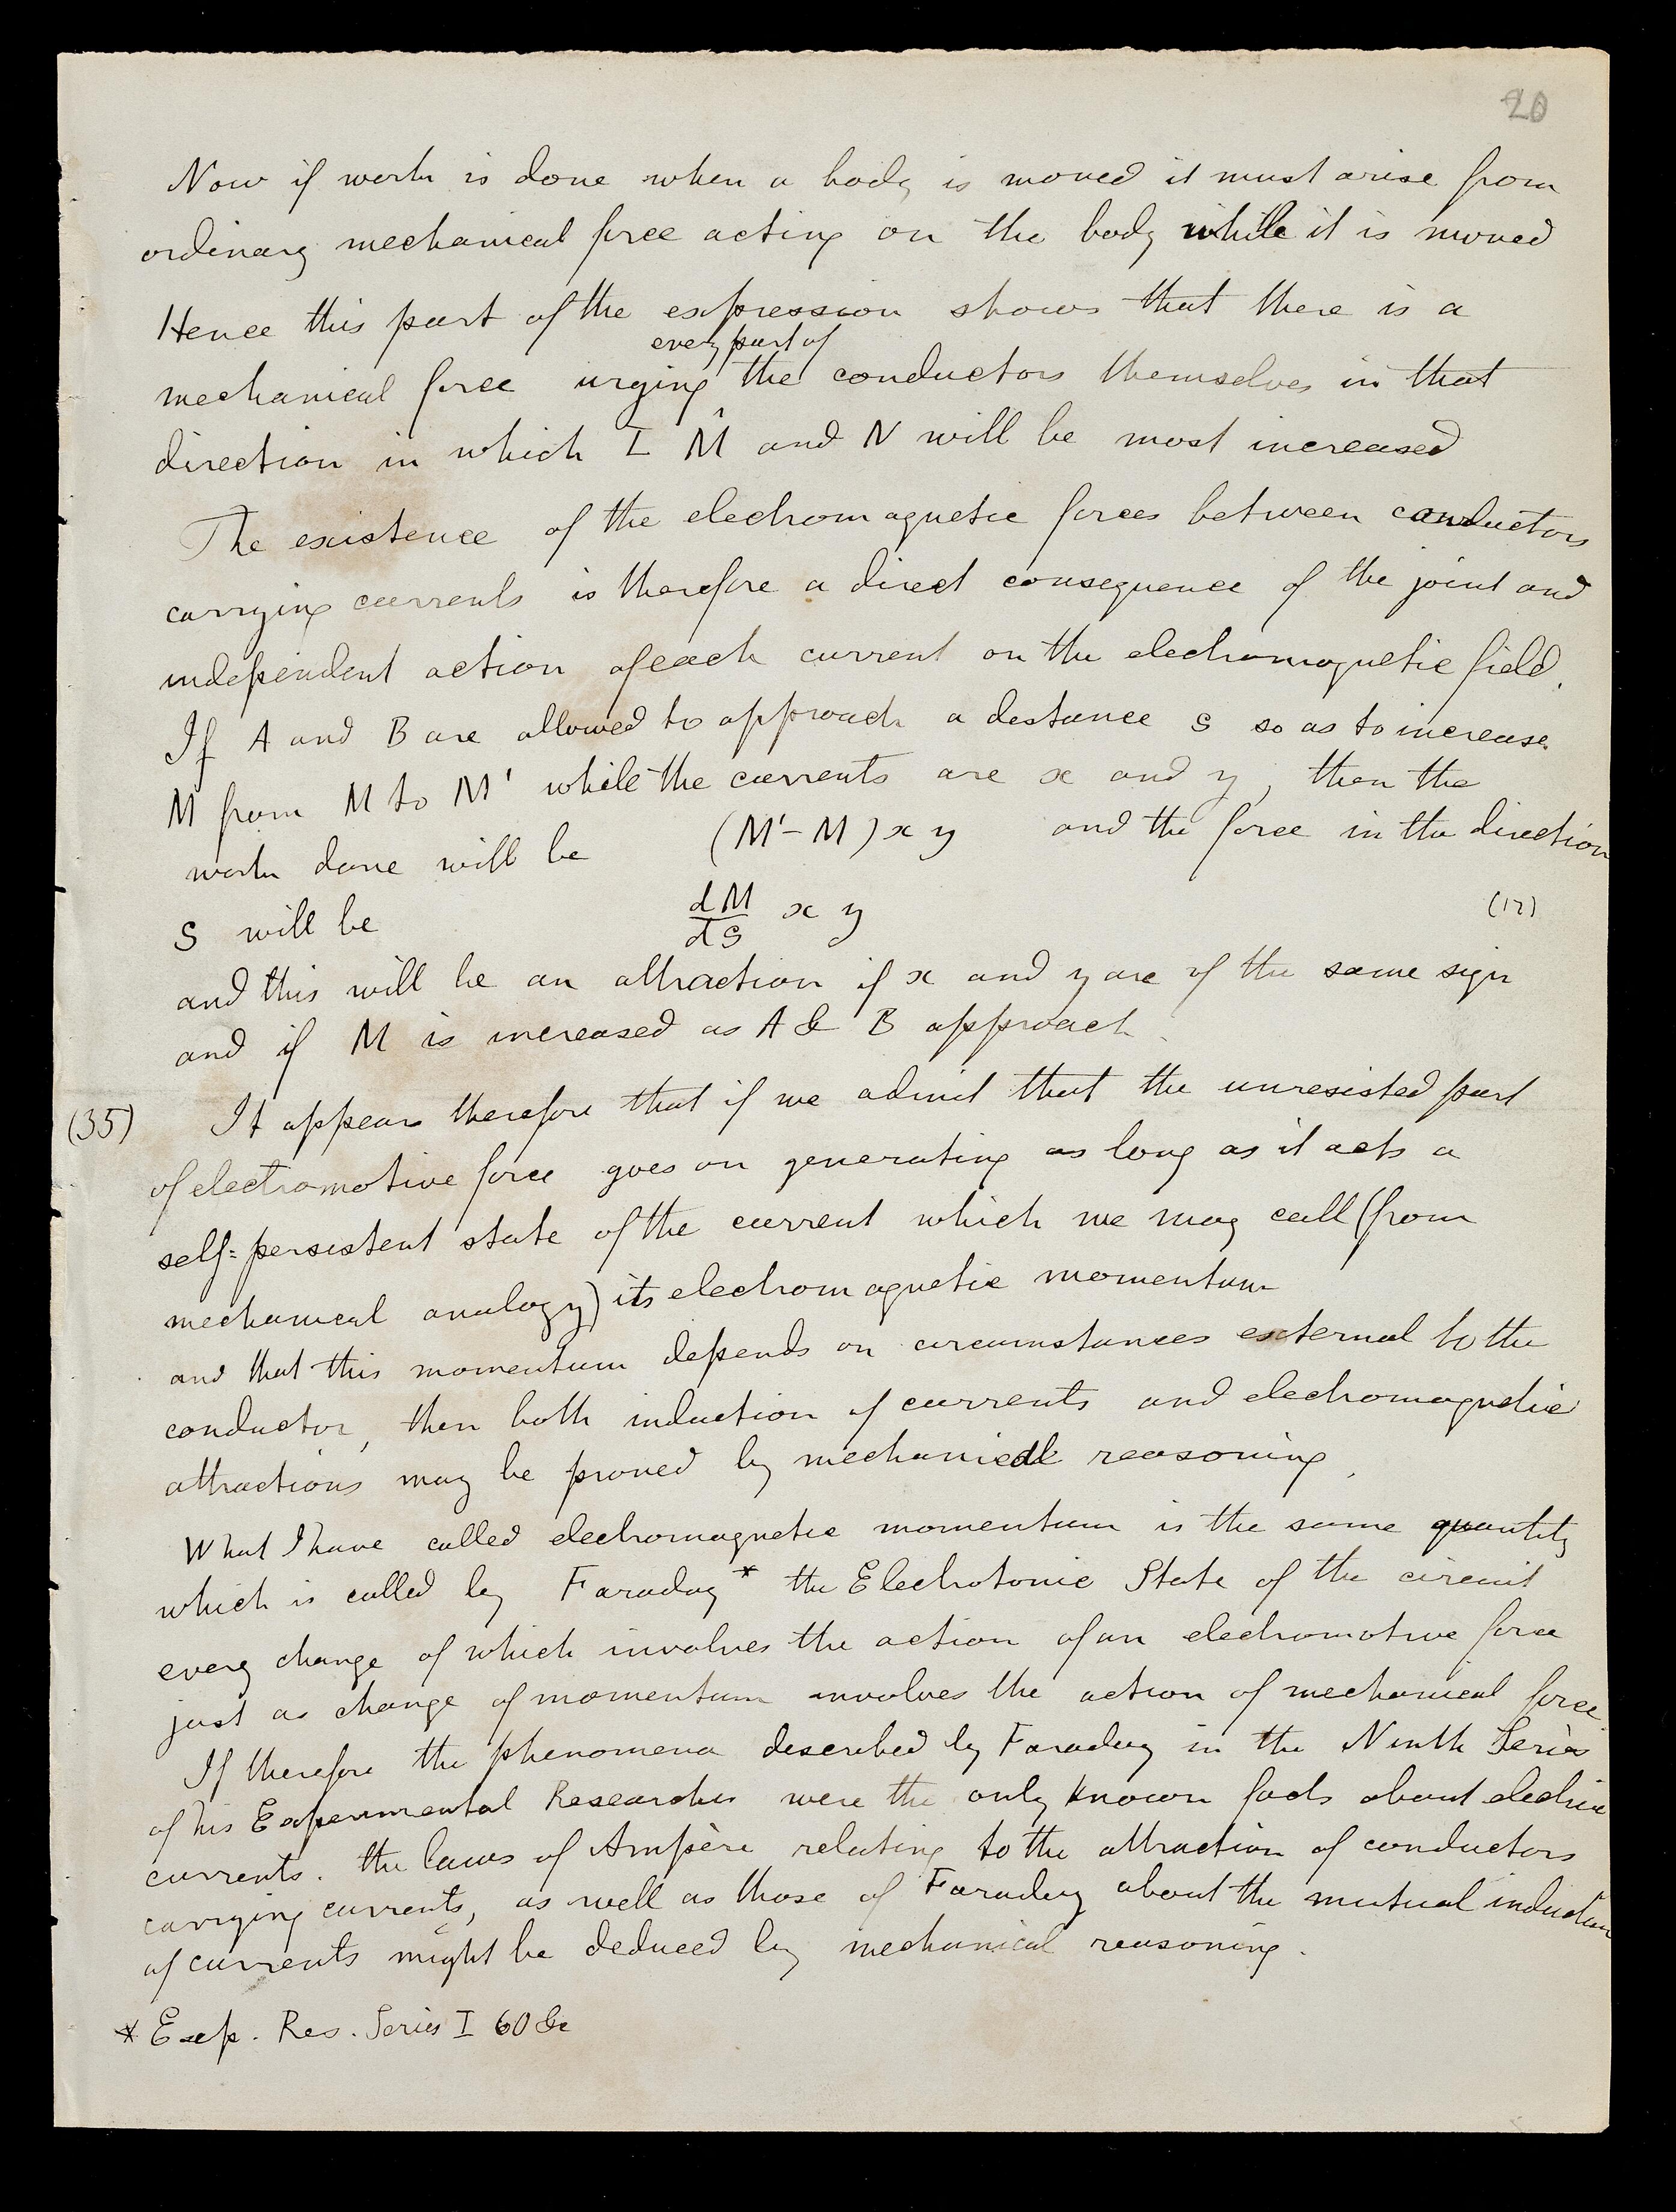 20
Now if work is done when a body is moved it must arise from
ordinary mechanical force acting on the body while it is moved
Hence this part of the expression shows that there is a
every part of
mechanical force urging ^ the conductors themselves in that
direction in which L M and N will be most increased
The existence of the electromagnetic forces between conductors
carrying currents is therefore a direct consequence of the joint and
independent action of each current on the electromagnetic field.
If A and B are allowed to approach a distance s so as to increase
M from M to M' while the currents are x and y, then the
work done will be (M'-M) x y and the force in the direction
s will be dM/ds x y (12)
and this will be an attraction if x and y are of the same sign
and if M is increased as A & B approach.
(35) It appears therefore that if we admit that the unresisted part
of electromotive force goes on generating as long as it acts a
self=persistent state of the current which we may call (from
mechanical analogy) its electromagnetic momentum
and that this momentum depends on circumstances external to the
conductor, then both induction of currents and electromagnetic
attractions may be proved by mechanical reasoning.
What I have called electromagnetic momentum is the same quantity
which is called by Faraday * the Electrotonic State of the circuit
every change of which involves the action of an electromotive force
just as change of momentum involves the action of mechanical force.
If therefore the phenomena described by Faraday in the Ninth Series
of his Experimental Researches were the only known facts about electric
currents. the laws of Ampère relating to the attraction of conductors
carrying currents, as well as those of Faraday about the mutual induction
of currents might be deduced by mechanical reasoning.
* Exp. Res. Series I 60 &c